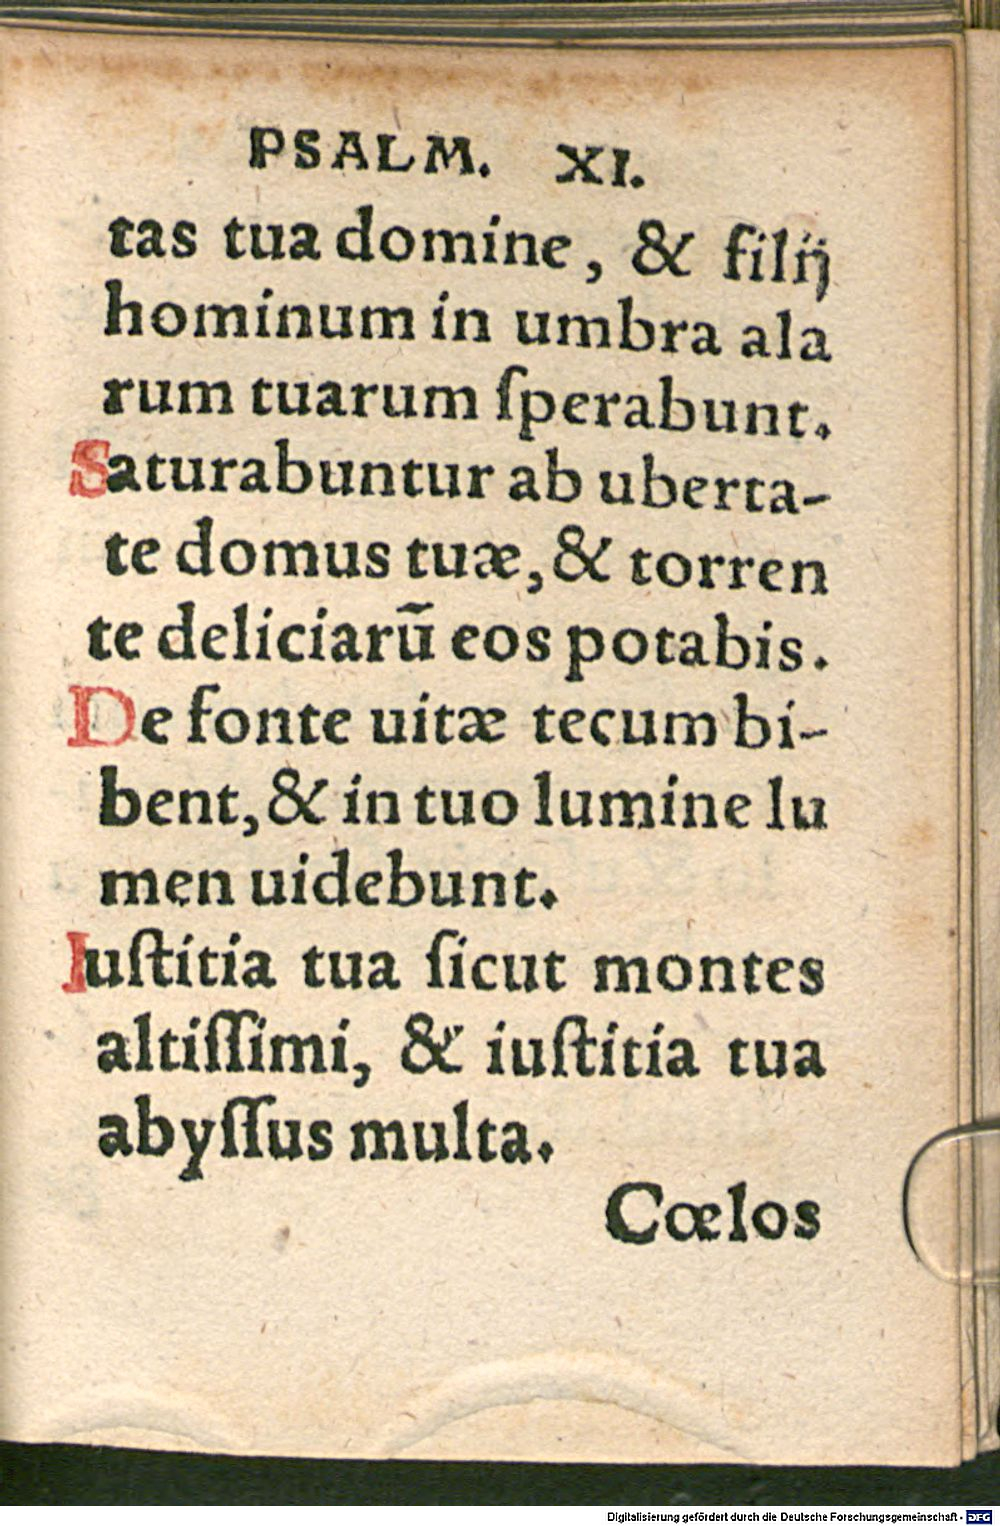 PSALM. XI.
tas tua domine, & filij
hominum in umbra ala
rum tuarum ſperabunt.
Saturabuntur ab uberta-
te domus tuæ, & torren
te deliciarū eos potabis.
De fonte uitæ tecum bi-
bent, & in tuo lumine lu
men uidebunt.
Iuſtitia tua ſicut montes
altiſſimi, & iuſtitia tua
abyſſus multa.
Cœlos
Digitalisierung gefördert durch die Deutsche Forschungsgemeinschaft - DFG